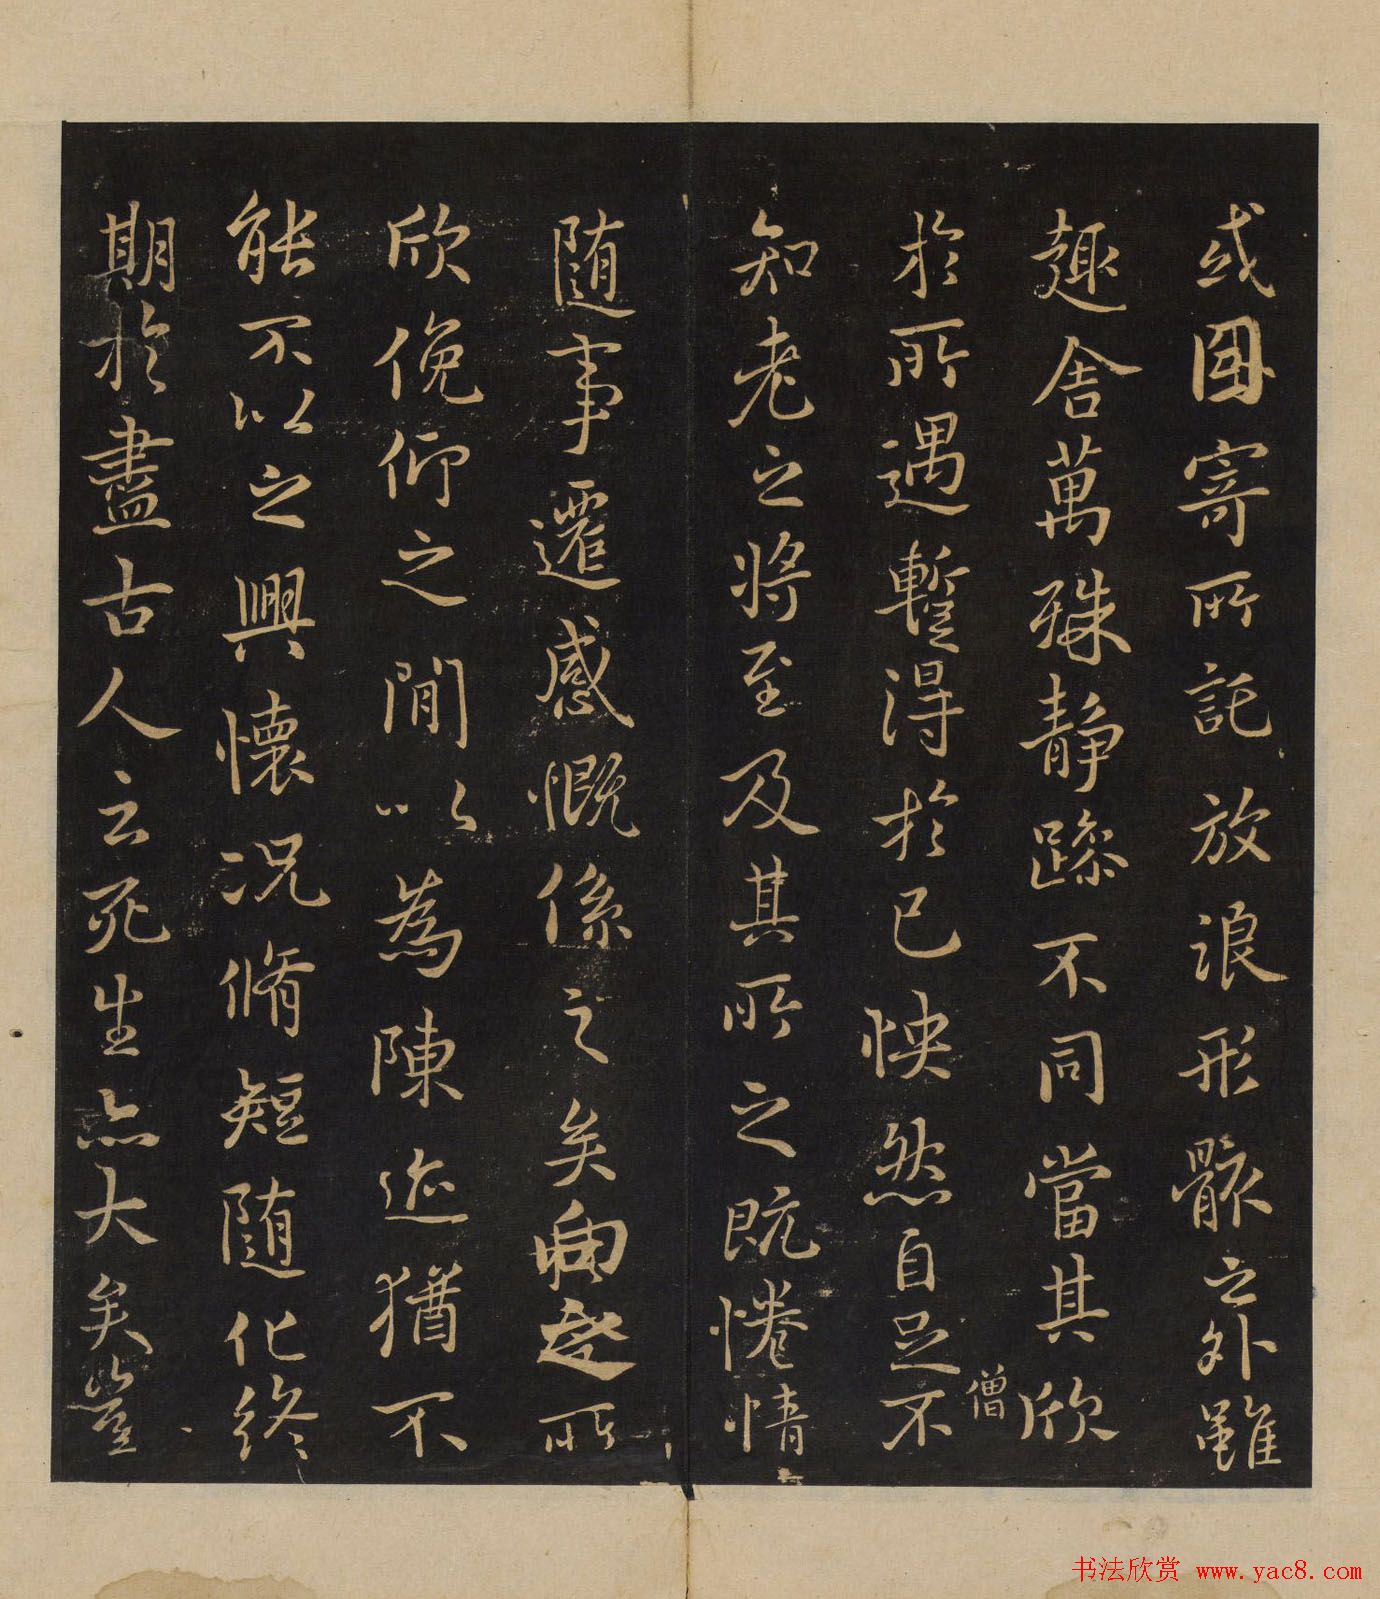 或因寄所託放浪形骸之外雖
趣舍萬殊静躁不同當其欣
於所遇暫得於己怏然自足不
僧
知老之將至及其所之既惓情
随事遷感慨係之矣向之所
欣俛仰之閒以為陳迹猶不
能不以之興懷況脩短随化終
期於盡古人云死生亦大矣豈
书法欣赏 www.yac8.com